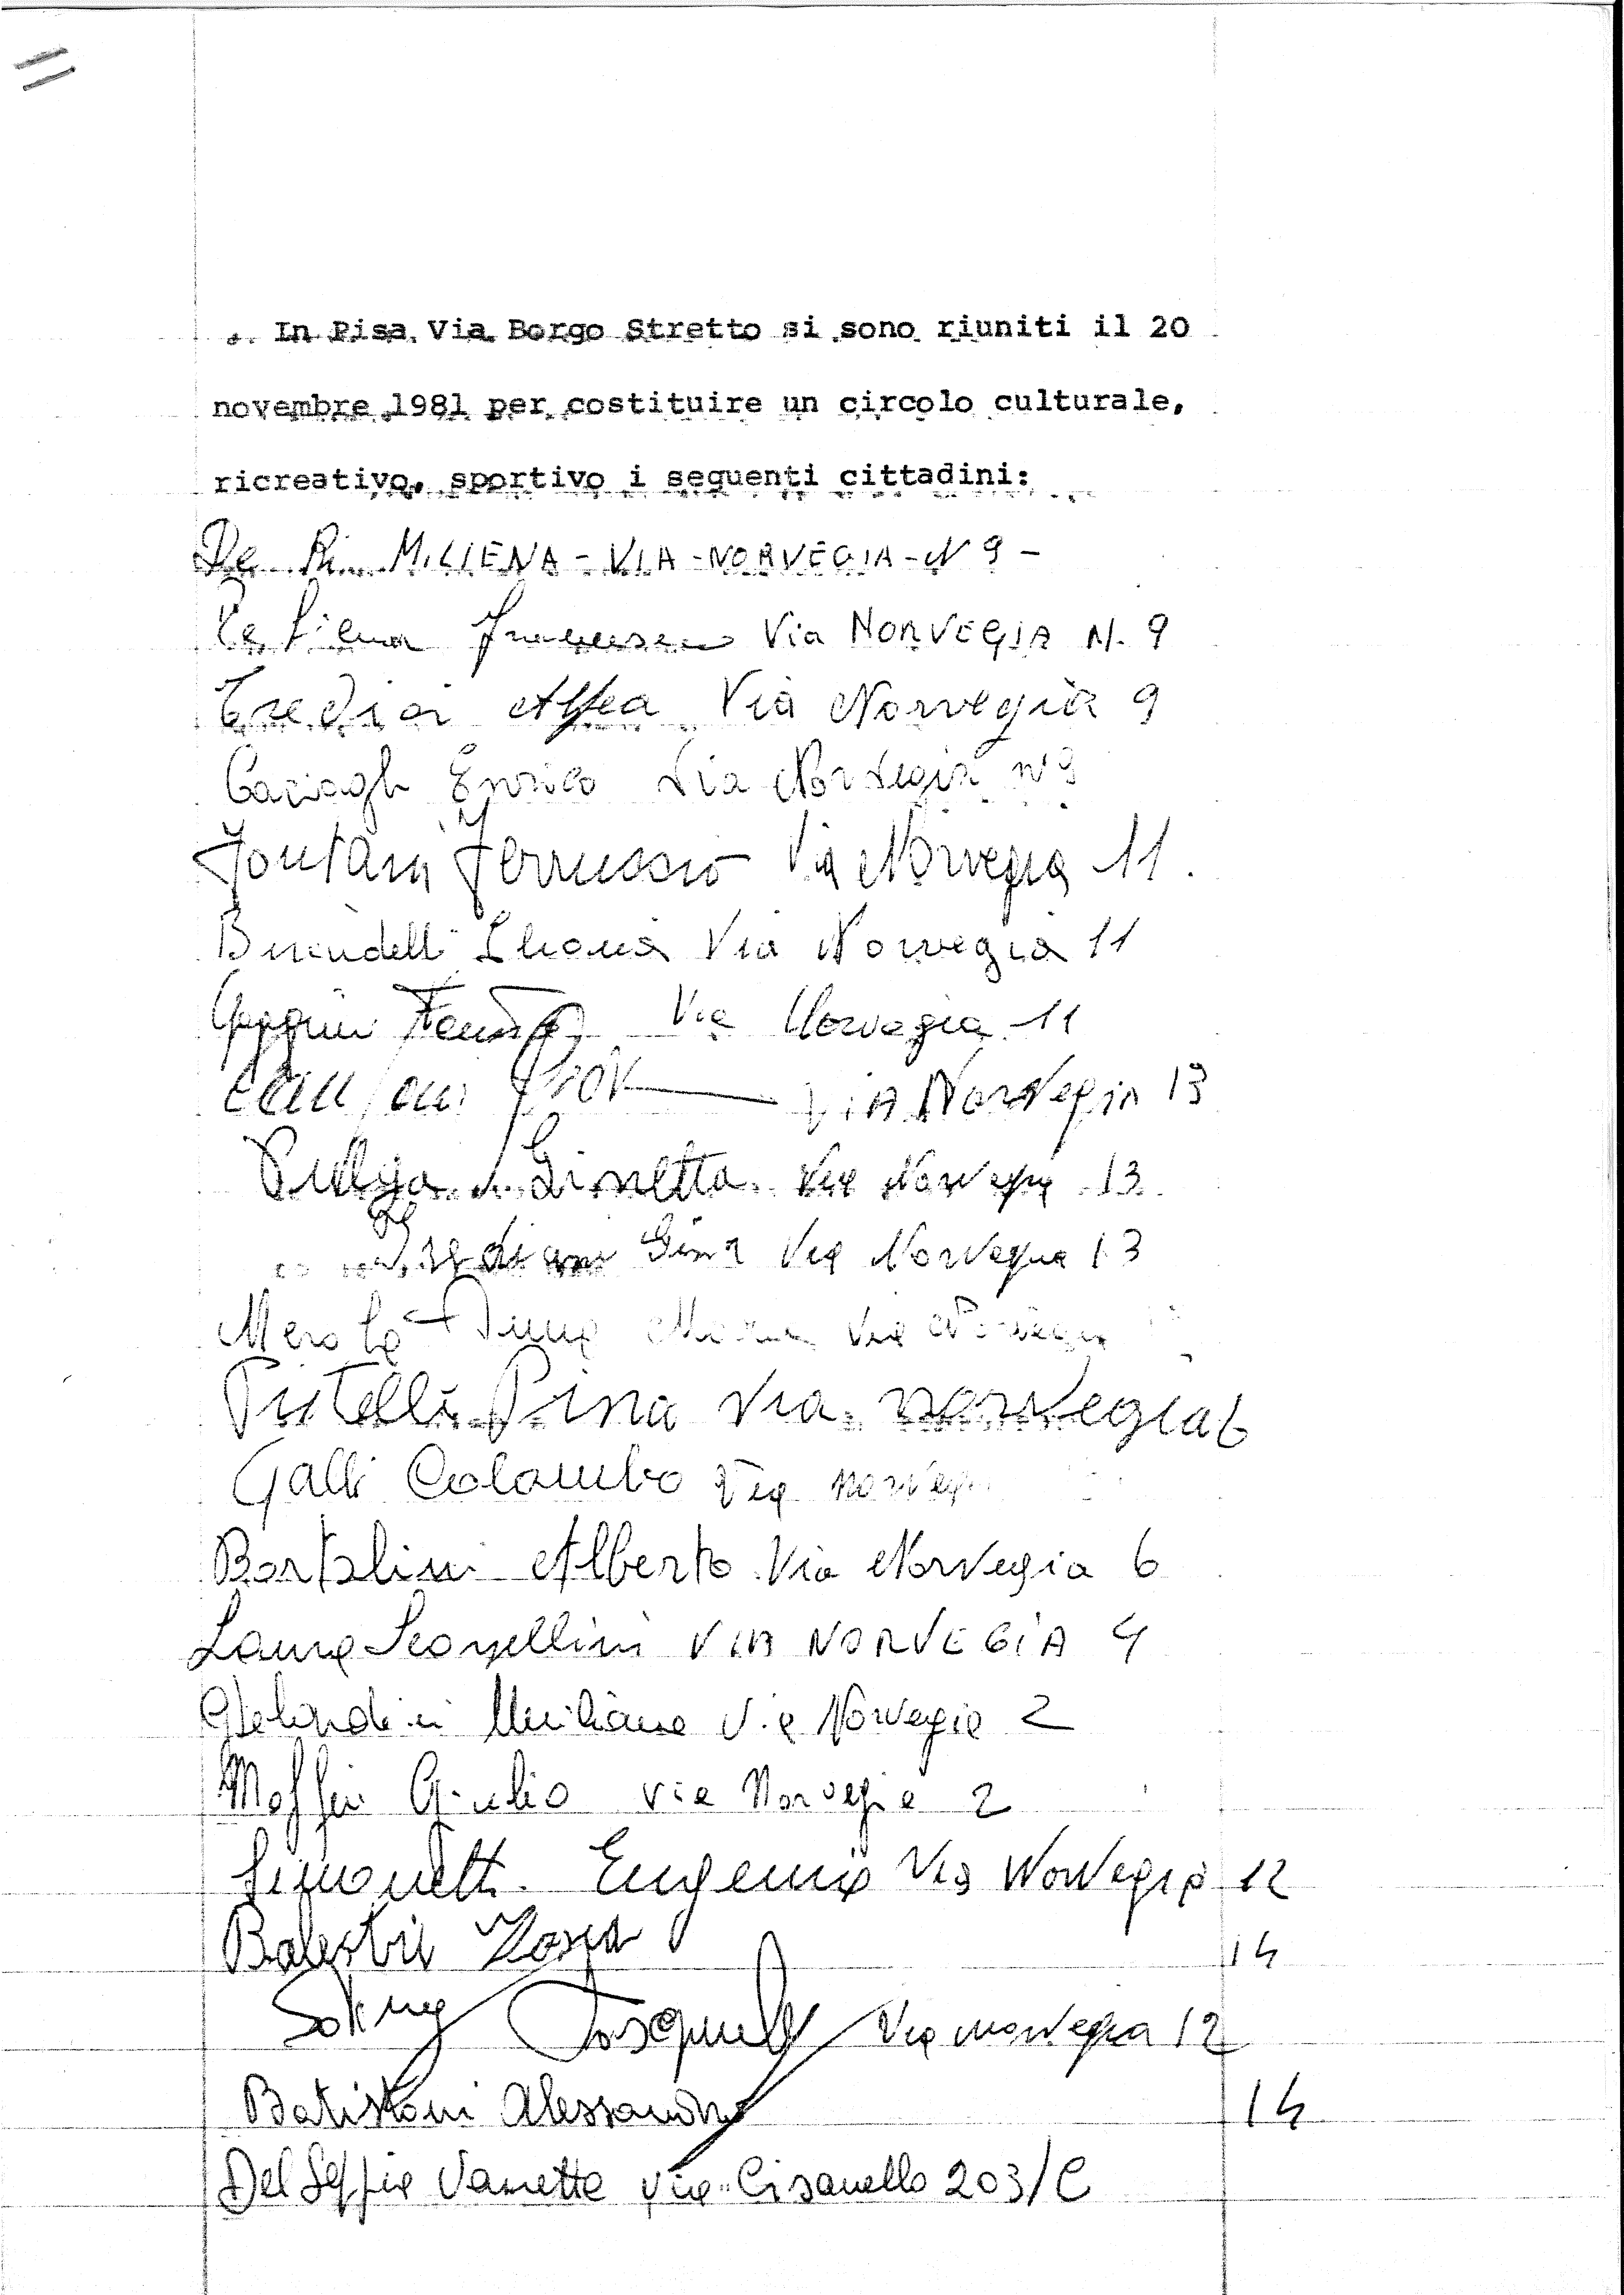 In Pisa Via Borgo Stretto si sono riuniti il 20
novembre 1981 per costituire un circolo culturale,
ricreativo, sportivo i seguenti cittadini:
De Ri MILIENA - VIA - NORVEGIA - N 9 -
Via NORVEGIA N. 9
Alfea Via Norvegia 9
Enrico Via Norvegia n° 9
Fontani Ferruccio Via Norvegia 11.
Birindelli Liliana Via Norvegia 11
Via Norvegia 11
VIA Norvegia 13
Ginetta Via Norvegia 13
Gina Via Norvegia 13
Merola Anna Maria Via Norvegia
Pistelli Pina Via norvegia 6
Galli Colombo Via Norvegia
Bortolini Alberto Via Norvegia 6
Laura VIA NORVEGIA 4
Via Norvegia 2
Maffei Giulio Via Norvegia 2
Simonetti Eugenia Via Norvegia 12
Balestri 14
Pasquale Via norvegia 12
Batistoni Alessandro 14
Del Seppia Vannetta via Cisanello 203/C